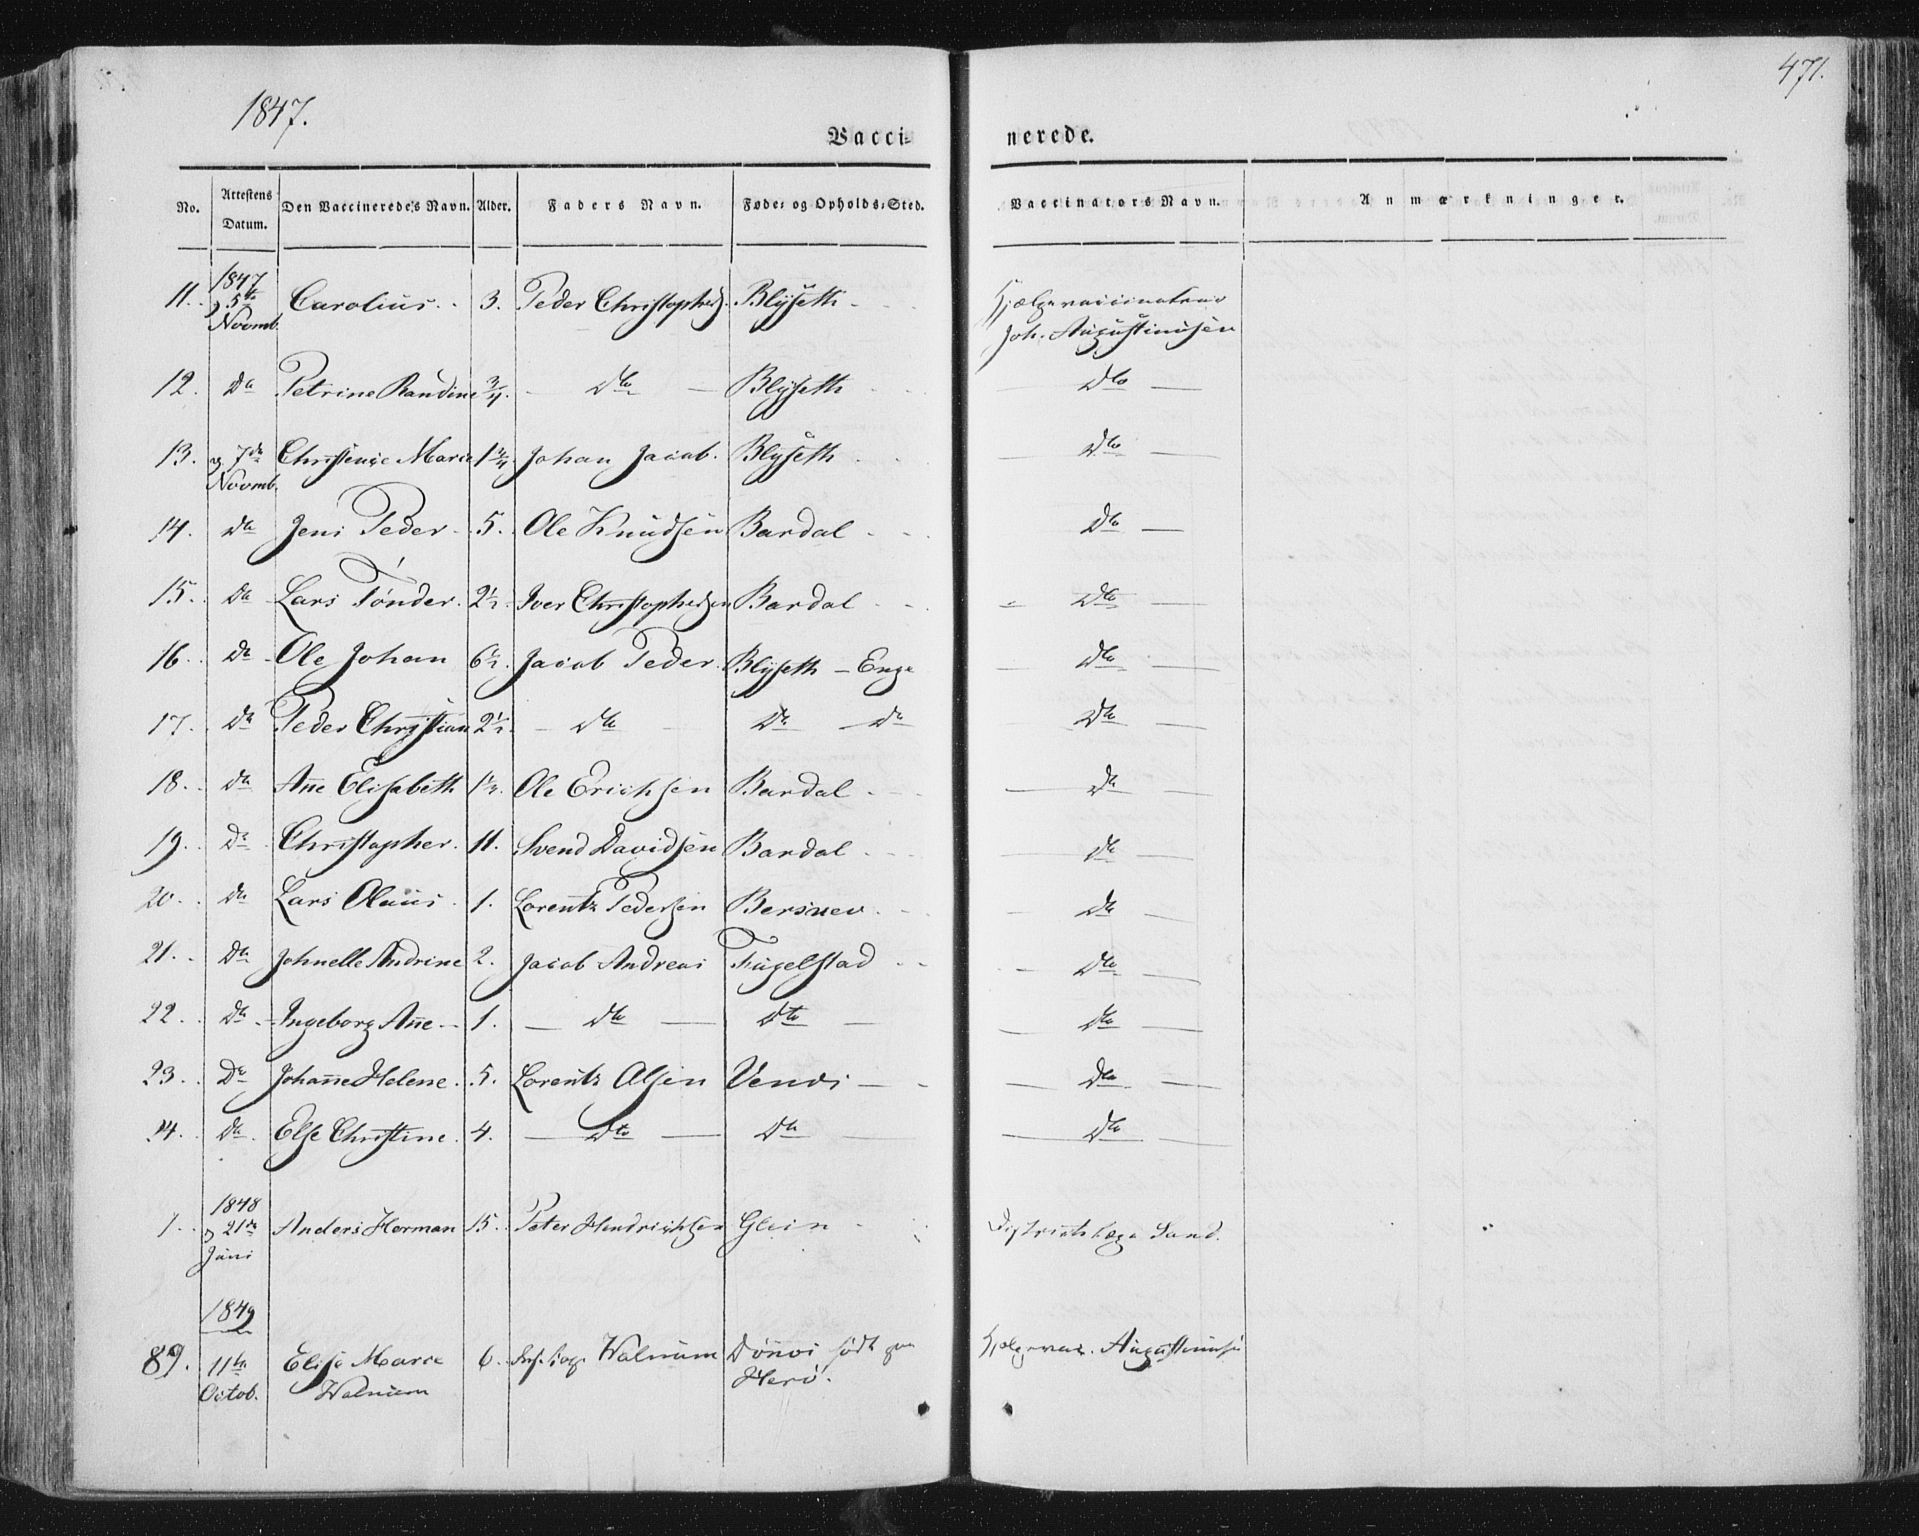 1847.
471.
Vacci- nerede.
No. Attestens Datum. Den Vaccineredes Navn. Alder. Faders Navn. Føde- og Opholds-Sted. Vaccinators Navn. Anmærkninger.
1847
11. 5te Novmb. Carolius. 3. Peder Christophers. Blyseth Hjælpevaccinateur Joh. Augustinusen
12. Do Petrine Randine 3/4. Dto Blyseth Dto
13. 7de Novmb. Christense Marie 1 3/4. Johan Jacob. Blyseth Dto
14. Do Jens Peder 5. Ole Knudsen Bardal Dto
15. Do Lars Tønder. 2½. Iver Christophersen Bardal Dto
16. Do Ole Johan 6½. Jacob Peder. Blyseth - Enge Dto
17. Do Peder Christian 2½. Dto Do Do Dto
18. Do Ane Elisabeth 1½. Ole Erichsen Bardal Do
19. Do Christopher. 11. Svend Davidsen Bardal Do
20. Do Lars Olaus 1. Lorentz Pedersen Do
21. Do Johnelle Andrine 2. Jacob Andreas Fugelstad Dto
22. Do Ingeborg Ane 1. Dto Dto Dto
23. Do Johanne Helene. 5. Lorentz Olsen Do
24. Do Else Christine. 4. Dto Do Dto
1848
1. 21de Juni Anders Herman 15. Peter Hendrichsen Glein Districtslæge Sand.
1849
89. 11te Octob. Elise Marie Walnum 6. Walnum Dønnes født paa Herø. Hjelpevac. Augustinusen